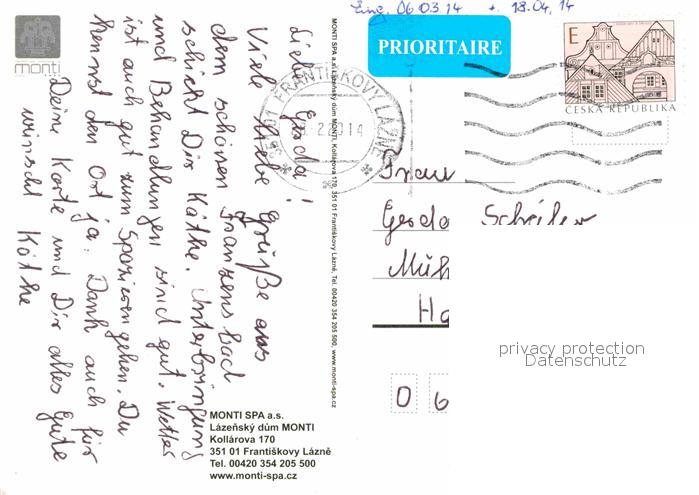 Eing. 06.03.14 *. 18.04.14
PRIORITAIRE
E
ČESKÁ REPUBLIKA
351 01 FRANTIŠKOVY LÁZNĚ
2014
monti
Liebe Gerda!
Viele liebe Grüße aus
dem schönen Franzensbad
schickt Dir Käthe. Unterbringung
und Behandlungen sind gut. Wetter
ist auch gut zum Spazierengehen. Du
kennst den Ort ja. Dank auch für
Deine Karte und Dir alles Gute
wünscht Käthe
MONTI SPA a.s. Lázeňský dům MONTI, Kollárova 170, 351 01 Františkovy Lázně, Tel. 00420 354 205 500, www.monti-spa.cz
Frau
Gerda
Müh
Ha
0 6
privacy protection
Datenschutz
MONTI SPA a.s.
Lázeňský dům MONTI
Kollárova 170
351 01 Františkovy Lázně
Tel. 00420 354 205 500
www.monti-spa.cz